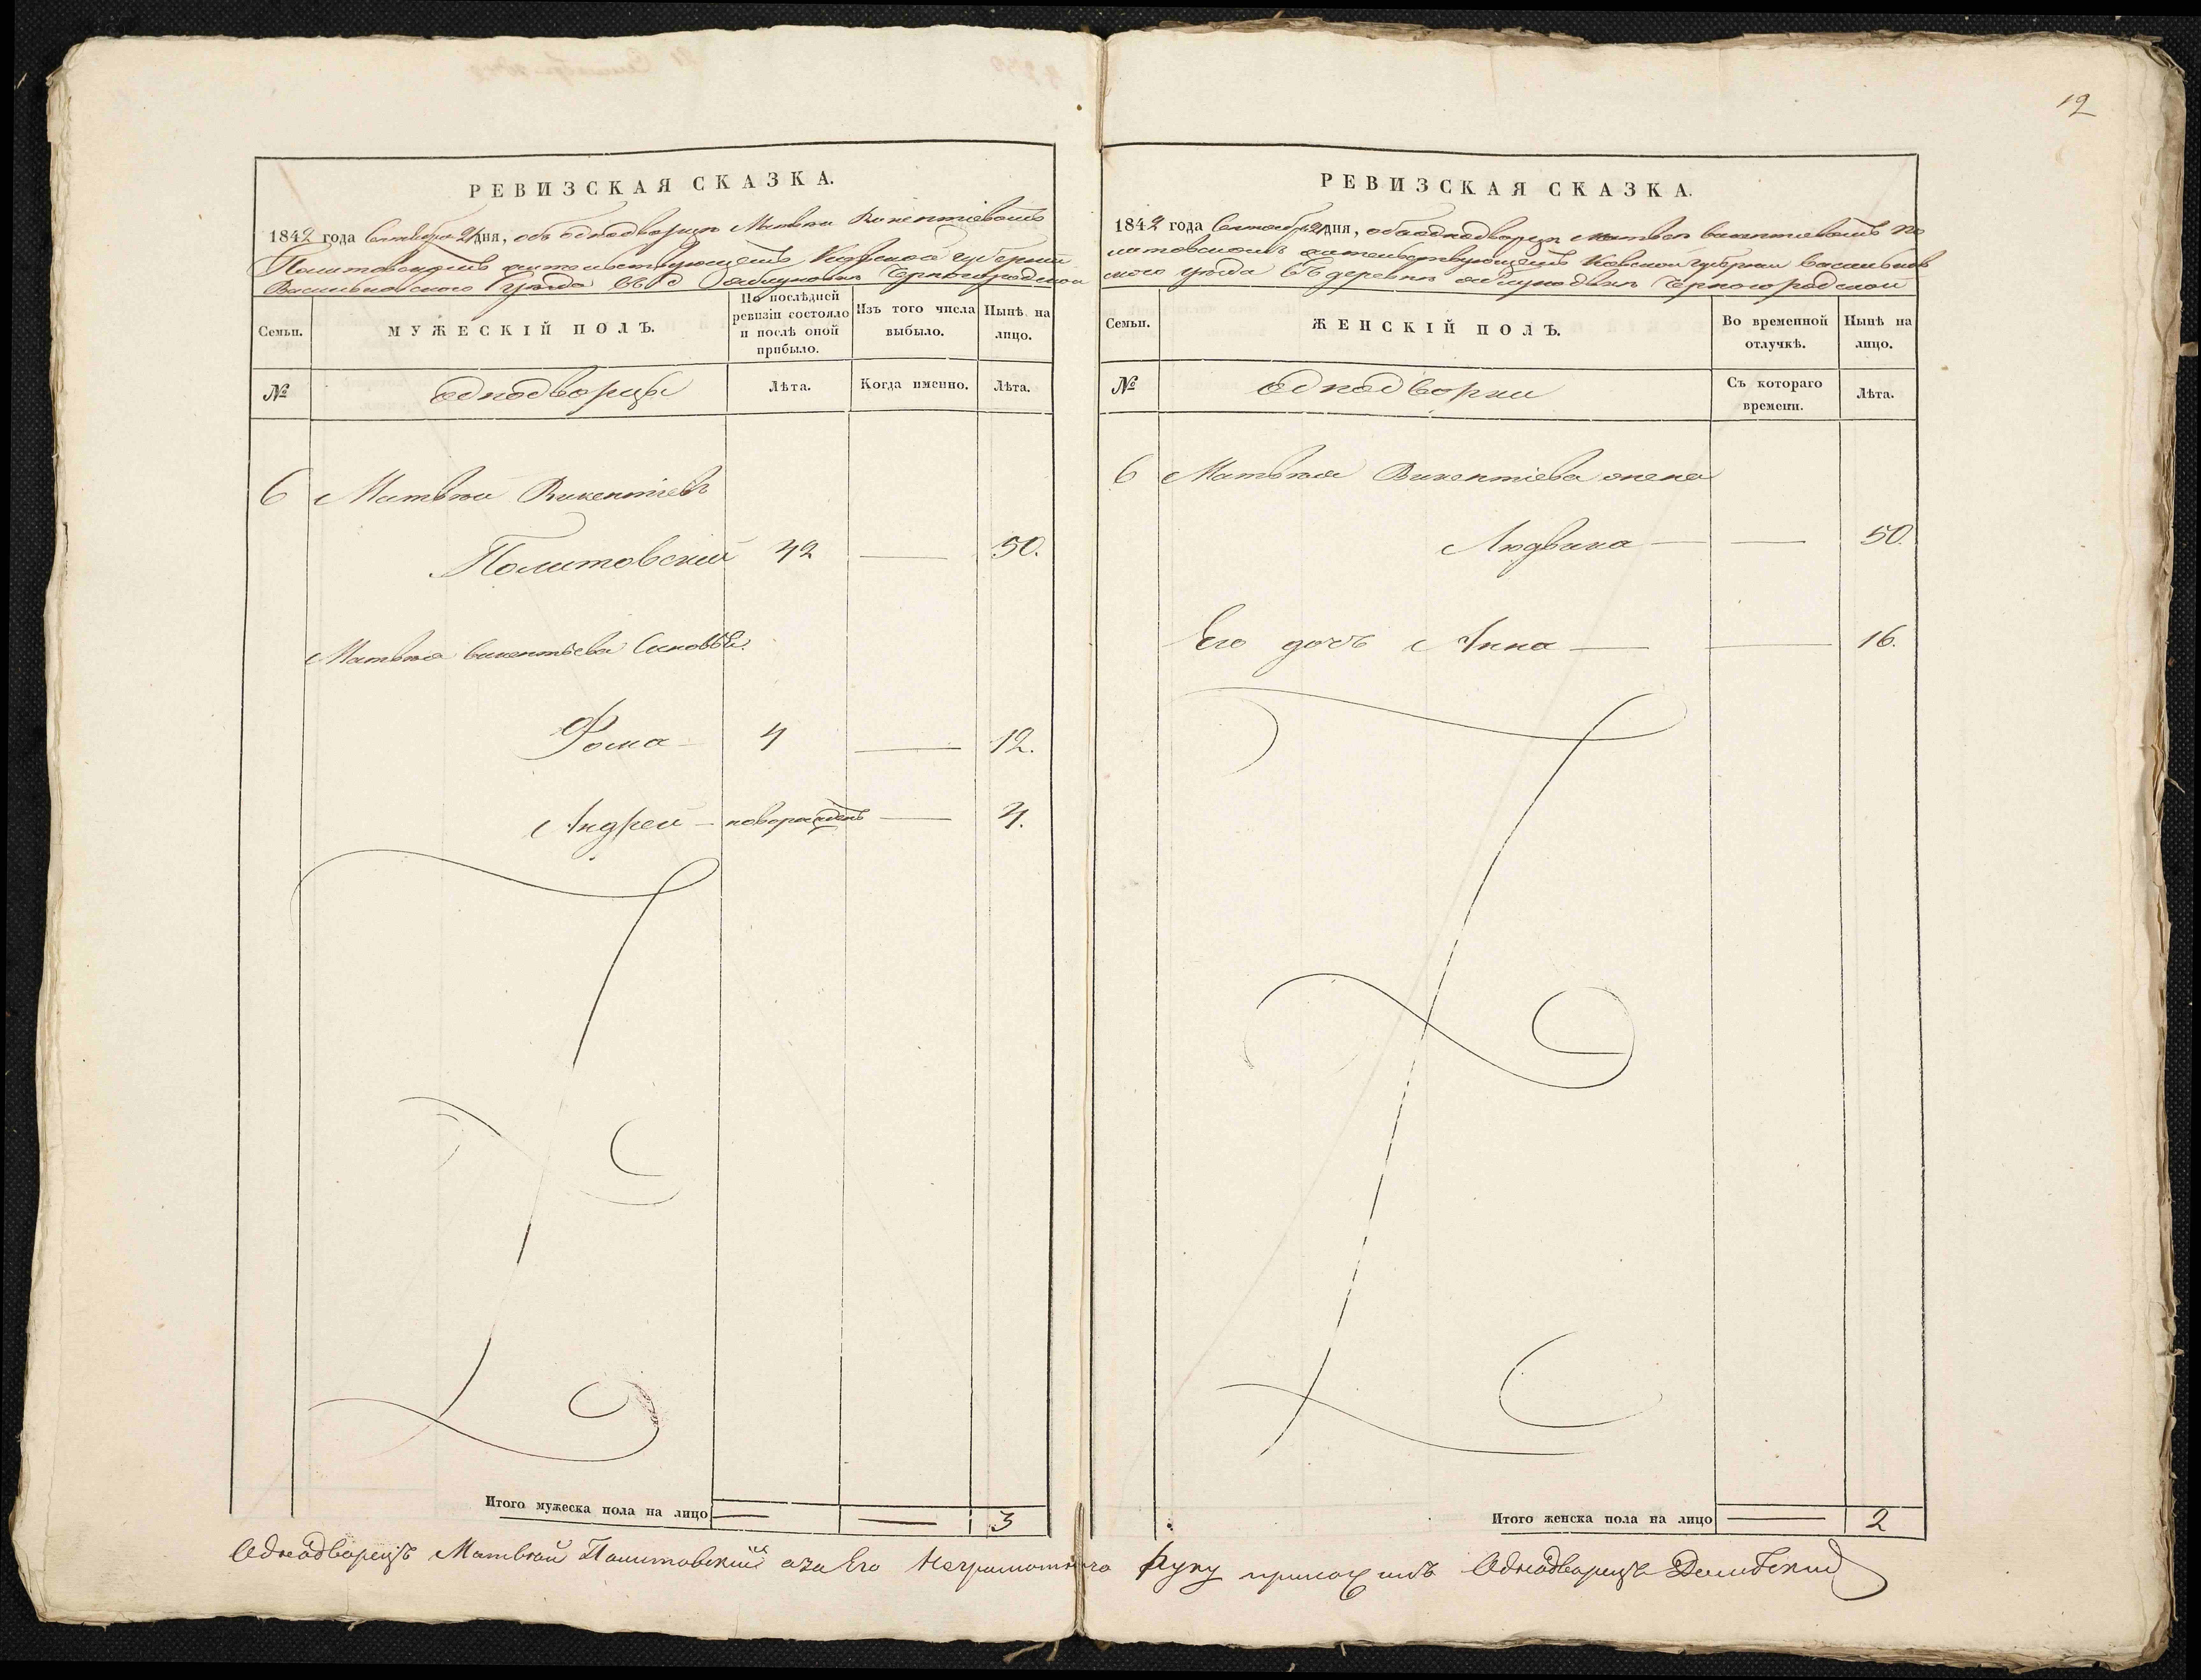 12
РЕВИЗСКАЯ СКАЗКА.
1842 года Сентября 21 дня, объ однодворцѣ Матвѣи Викентіевомъ
Политовскомъ жительствующемъ Кіевской губерніи
Васильковского уѣзда въ д
По послѣдней ревизіи состояло и послѣ оной прибыло.
Изъ того числа выбыло.
Нынѣ на лицо.
Семьи.
МУЖЕСКІЙ ПОЛЪ.
№
однодворцы
Лѣта.
Когда именно.
Лѣта.
6 Матвѣй Викентіевъ
Политовскій 42 — 50.
Матвѣя Викентіева Сыновья
Фома — 4 — 12.
Андрей — новорожденъ — 4.
Итого мужеска пола на лицо — — 3
РЕВИЗСКАЯ СКАЗКА.
1842 года Сентября 21 дня, объ однодворцѣ Матвѣи Викентіевомъ По
литовскомъ жительствующемъ Кіевской губерніи Васильков
ского уѣзда въ деревнѣ
Семьи.
ЖЕНСКІЙ ПОЛЪ.
Во временной отлучкѣ.
Нынѣ на лицо.
№
однодворки
Съ котораго времени.
Лѣта.
6 Матвѣя Викентіева жена
Людвика — — 50.
Его дочь Анна — — 16.
Итого женска пола на лицо — 2
Однодворецъ Матвѣй Палитовскій а за Его Неграмотного Руку приложилъ Однодворецъ